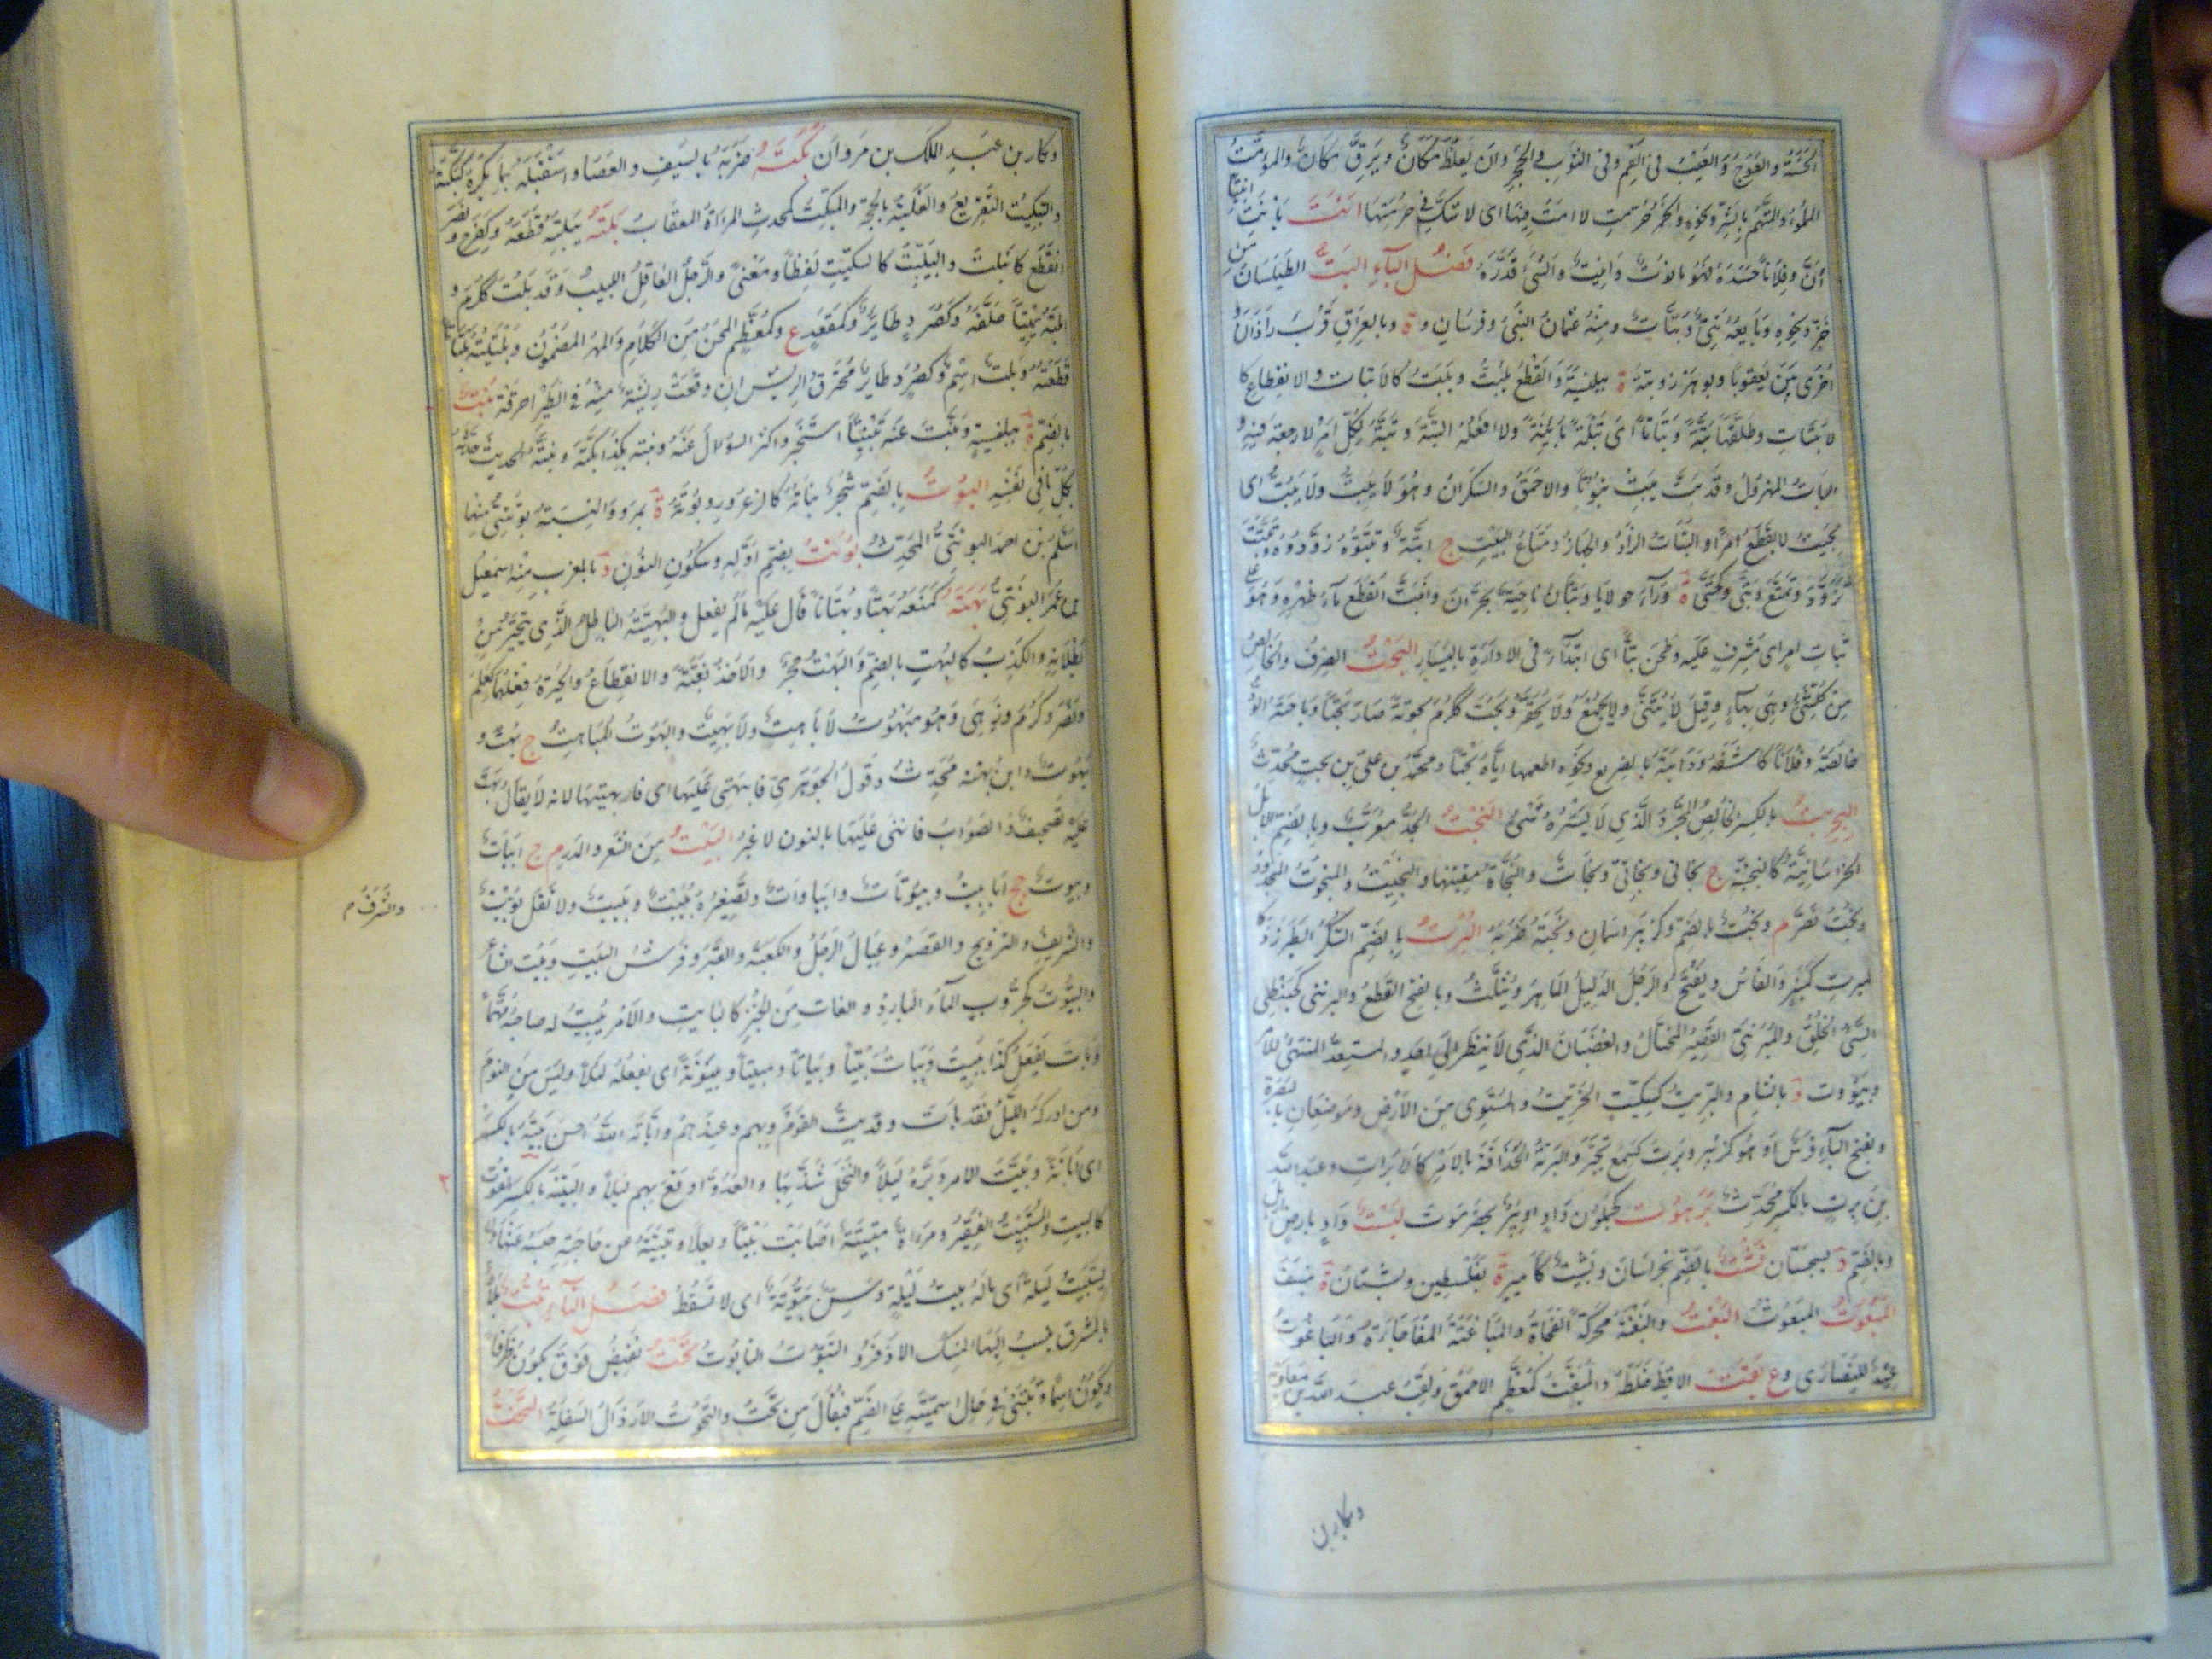 الحسنة والعوج والعيب فى الفم وفى الثوب والحجر وان يغلظ مكان ويرق مكان والمؤمت
المملوء والمتهم بالشر ونحوه والخمر حرمت لا امت فيها اى لا شك فى حرمتها انت يانت انيتا
انّ وفلانا حسده فهو مانوت وانيت والشى قدره فصل الباء البت الطيلسان من
خز ونحوه وبايعه بتى وبتات ومنه عثمان البتى وفرسان و ة وبالعراق قرب راذان و
اخرى بين يعقوبا وبوهرز وبتة ة ببلنسية والقطع يبت ويبت كالابتات والانقطاع كا
لانبتات وطلقها بتة وبتاتا اى بتلة بائنة ولا افعله البتة وبتة لكل امر لا رجعة فيه و
البات المهزول وقد بت يبت بتوتا والاحمق والسكران وهو لا يبت ولا يبت اى
بحيث لا يقطع امرا والبتات الزاد والجهاز ومتاع البيت ج ابتة وبتتوه زودوه وتبتت
تزود وتمتع وبتى وكحتى ة وراء حولايا وبتان ناحية بحران وانبت انقطع ماء ظهره وهو على
بتات امر اى مشرف عليه وطحن بتا اى ابتداء فى الادارة باليسار البحت الصرف والخالص
من كل شئ وهى بهاء وقيل لا يثنى ولا يجمع ولا يحقر وبحت ككرم بحوتة صار بحتا وباحته الود
خالصه وفلانا كاشفه ودابته بالضريع ونحوه اطعمها اياه بحتا ومحمد بن على بن بحت محدث
البحريت بالكسر الخالص المجرد الذى لا يستره شئ البخت الجد معرب وبالضم الابل
الخراسانية كالبختية ج بخاتى وبخاتى وبخات والبخات مقتنيها والبخيت والمبخوت المجدود
وبخت نصر م وبخت بالضم وكزبير اسمان وبخته ضربه البرت بالضم السكر الطبرزد كا
لمبرت كمنبر والفاس ويفتح والرجل الدليل الماهر ويثلث وبالفتح القطع والبرنتى كحبنطى
السئ الخلق والمبرنتى القصير المختال والغضبان الذى لا ينظر الى احد والمستعد المتهئ للامر
وبيروت د بالشام والبريت كسكيت الخريت والمستوى من الارض وموضعان بالبصرة
وبفتح الباء فرس او هو كزبير وبرت كسمع تحير والبرتة الحذاقة بالامر كالابرات وعبد الله
بن برت بالكسر محدث برهوت كحلزون واد او بئر بحضرموت بست واد بارض اربل
وبالضم د بسجستان بشت بالضم بخراسان وبشيت كامير ة بفلسطين وبشتان ة بنسف
المبعوت المبعوث البغت والبغتة محركة الفجاة والمباغتة المفاجاة والباغوت
عيد للنصارى وع بقت الاقط خلطه والمبقت كمعظم الاحمق ولقب عبد الله بن معاوية
وبكار بن
وبكار بن عبد الملك بن مروان بكته ضربه بالسيف والعصا واستقبله بما يكره كبكته
والتبكيت التقريع والغلبة بالحجة والمبكت كمحدث المراة المعقاب بلته يبلته قطعه وكفرح ونصر
انقطع كانبلت والبليت كالسكيت لفظا ومعنى والرجل العاقل اللبيب وقد بلت ككرم و
ابلته يمينا حلفه وكصرد طائر وكمقعد ع وكمعظم المحسن من الكلام والمهر المضمون وبلتيته بلتا
قطعته وبلت اسم وكصرد طائر محترق الريش ان وقعت ريشة منه فى الطير احرقته بنت
بالضم ة ببلنسية وبنت عنه تبنيتا استخبر واكثر السؤال عنه وبنته بكذا بكته وبنته الحديث حدثه
بكل ما فى نفسه البوت بالضم شجر نباته كالزعرور وبوتة ة بمرو والنسبة بوتقى منها
اسلم بن احمد البوتقى المحدث بونت بضم اوله وسكون النون د بالمغرب منه اسمعيل
بن عمر البونتى بهته كمنعه بهتا وبهتانا قال عليه ما لم يفعل والبهيتة الباطل الذى يتحير من
بطلانه والكذب كالبهت بالضم والبهت حجر والاخذ بغتة والانقطاع والحيرة فعلهما كعلم
ونصر وكرم وزهى وهو مبهوت لا باهت ولا بهيت والبهوت المباهت ج بهت و
بهوت وابن بهتة محدث وقول الجوهرى فابهتى عليها اى فابهتيها لانه لا يقال بهت
عليه تصحيف والصواب فانهتى عليها بالنون لا غير البيت من الشعر والمدر م ج ابيات
وبيوت جج ابابيت وبيوتات وابياوات وتصغيره بييت وبييت ولا تقل بويت
والشرف م
والشريف والتزويج والقصر وعيال الرجل والكعبة والقبر وفرش البيت وبيت الشاعر
والبيوت كخروب الماء البارد والغاب من الخبز كالبايت والامر يبيت له صاحبه مهتما
وبات يفعل كذا يبيت ويبات بيتا وبياتا ومبيتا وبيتوتة اى يفعله ليلا وليس من النوم
ومن ادركه الليل فقد بات وقد بت القوم وبهم وعندهم واباته الله احسن بيتة بالكسر
اى اباتة وبيت الامر دبره ليلا والنخل شذبها والعدو اوقع بهم ليلا والبيتة بالكسر القوت
كالبيت والمستبيت الفقير وامراة متبيتة اصابت بيتا وبعلا وتبيته عن حاجته حبسه عنها ولا
يستبيت ليلة اى ما له بيت ليلة وسن بيوتة اى لا تسقط فصل التاء تبت كسكر
بالمشرق ينسب اليها المسك الاذفر والتبوت التابوت تحت نقيض فوق يكون ظرفا
ويكون اسما ويبنى فى حال اسميته على الضم فيقال من تحت والتحوت الارذال السفلة التخت